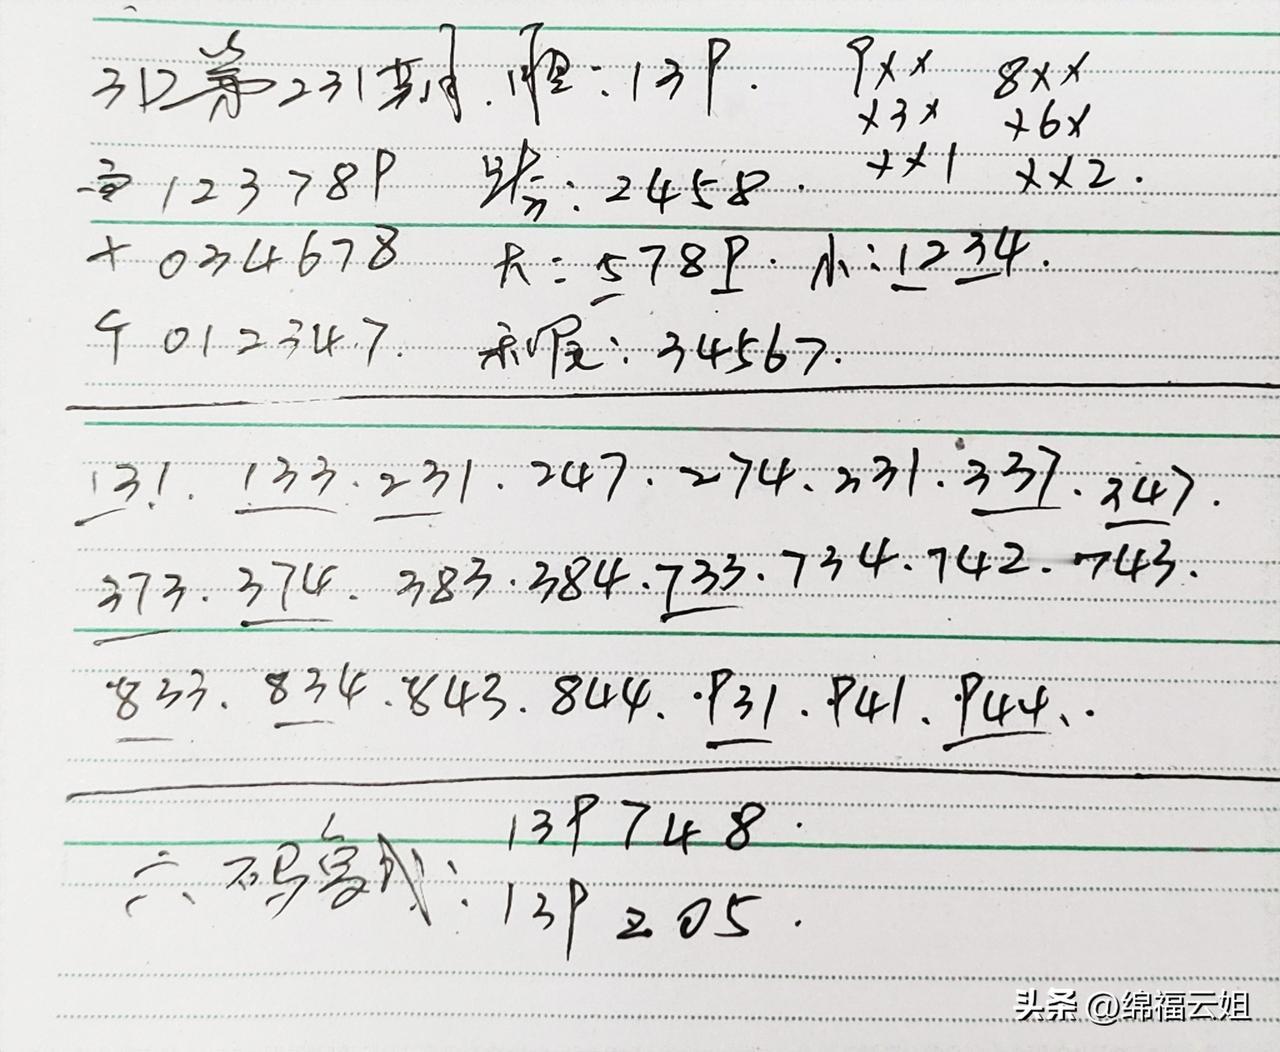 3D第231期.胆:139. 9×× 8××
×3× ×6×
××1 ××2.
百123789 跨:2458.
十034678 大:5789.小:1234.
个012347. 和尾:34567.
131.133.231.247.274.331.337.347.
373.374.383.384.733.734.742.743.
833.834.843.844.931.941.944..
六码复式:139748.
139205.
头条 @绵福云姐